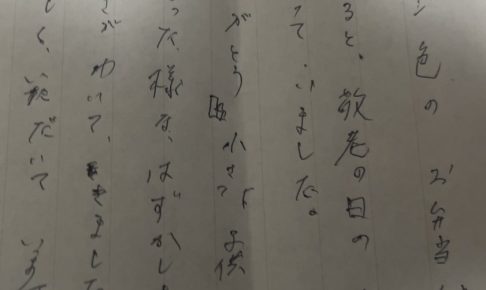 色のお弁当
ると、敬老の日の
って、いました。
がとう 小さな子供
った様な、はずかし
がわいて、きました
く、頂だいて います